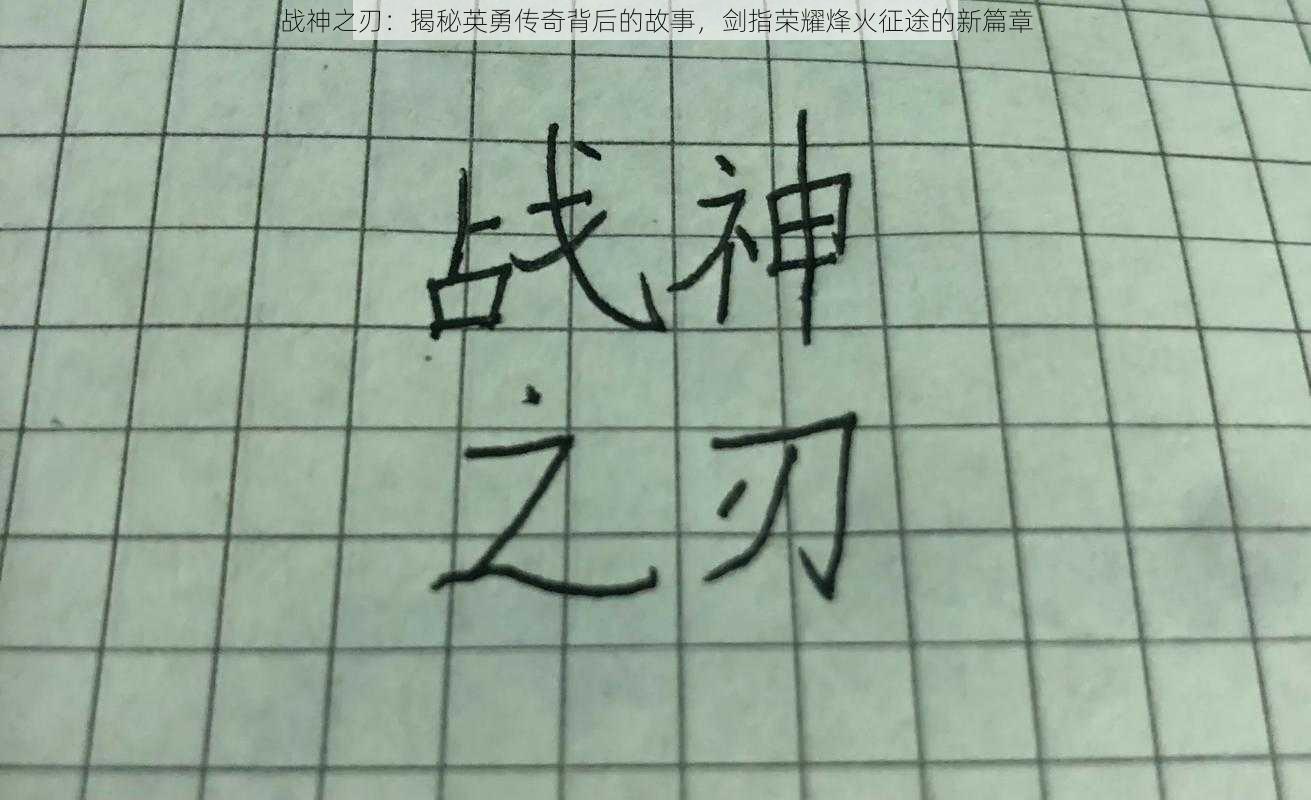 战神之刃：揭秘英勇传奇背后的故事，剑指荣耀烽火征途的新篇章
战神
之刃